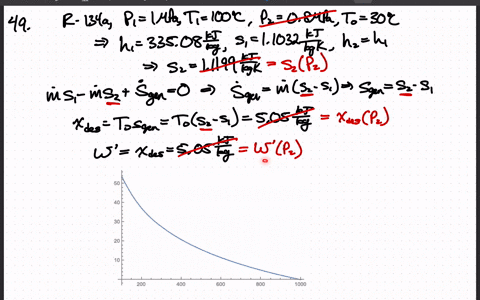 49. R-134a, P₁=1MPa, T₁=100°C, P₂=0.8MPa, T₀=30°C
⇒ h₁=335.08 kJ/kg, s₁=1.1032 kJ/kgK, h₂=h₁
⇒ s₂=1.1199 kJ/kgK =s₂(P₂)
ṁs₁-ṁs₂+Ṡgen=0 ⇒ Ṡgen=ṁ(s₂-s₁)⇒ sgen=s₂-s₁
xdes=T₀sgen=T₀(s₂-s₁)=5.05 kJ/kg =xdes(P₂)
w'=xdes=5.05 kJ/kg =w'(P₂)
50
40
30
20
10
200 400 600 800 1000